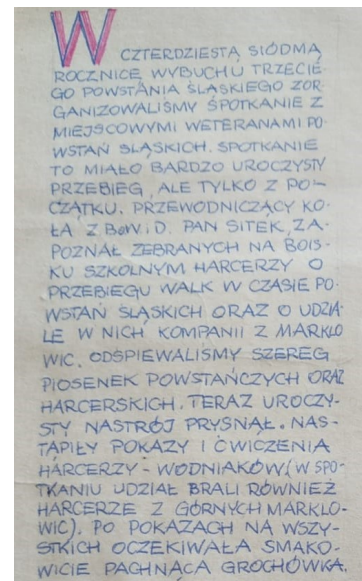 W CZTERDZIESTĄ SIÓDMĄ
ROCZNICĘ WYBUCHU TRZECIE-
GO POWSTANIA ŚLĄSKIEGO ZOR-
GANIZOWALISMY SPOTKANIE Z
MIEJSCOWYMI WETERANAMI PO-
WSTAŃ ŚLĄSKICH. SPOTKANIE
TO MIAŁO BARDZO UROCZYSTY
PRZEBIEG, ALE TYLKO Z PO-
CZĄTKU. PRZEWODNICZĄCY KO-
ŁA Z BOWiD. PAN SITEK, ZA-
POZNAŁ ZEBRANYCH NA BOIS-
KU SZKOLNYM HARCERZY O
PRZEBIEGU WALK W CZASIE PO-
WSTAŃ ŚLĄSKICH ORAZ O UDZIA-
LE W NICH KOMPANII Z MARKLO
WIC. ODSPIEWALISMY SZEREG
PIOSENEK POWSTAŃCZYCH ORAZ
HARCERSKICH. TERAZ UROCZY-
STY NASTRÓJ PRYSNĄŁ. NAS-
TĄPIŁY POKAZY I ĆWICZENIA
HARCERZY - WODNIAKÓW (W SPO-
TKANIU UDZIAŁ BRALI RÓWNIEŻ
HARCERZE Z GÓRNYCH MARKLO-
WIC). PO POKAZACH NA WSZY-
STKICH OCZEKIWAŁA SMAKO-
WICIE PACHNĄCA GROCHÓWKA.